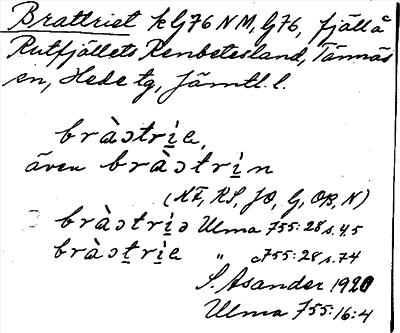 Brattriet k G76 NM, G76, fjäll å
Rutfjällets Renbetesland, Tännäs
sn, Hede tg, Jämtl. l.
bràɔtri̱e,
även bràɔtri̱n
(NF, RS, JO, G, OB, N)
bràɔtri̱ɔ Ulma 755:28 s. 45
bràɔt̠ri̱e " 755:28 s. 74
S. Asander 1920
Ulma 755:16:4